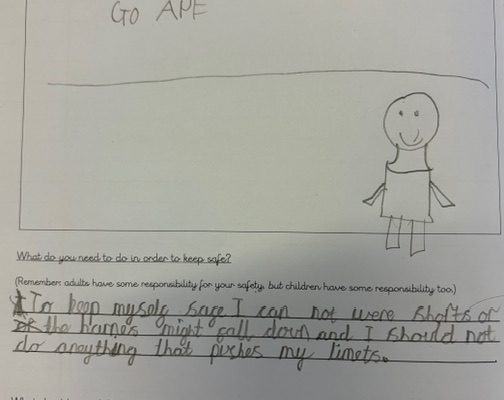 GO APE
What do you need to do in order to keep safe?
(Remember: adults have some responsibility for your safety, but children have some responsibility too.)
To keep myself safe I can not were shorts or
the harnes might fall down and I should not
do aneything that pushes my limets.